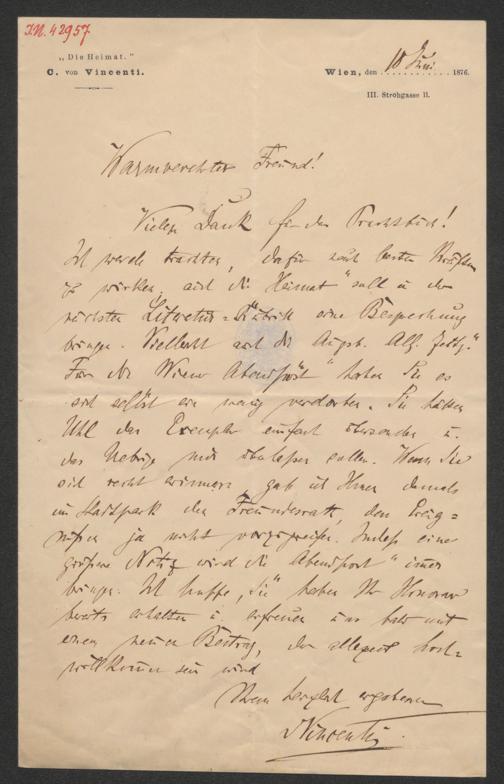 I.N. 42957
„Die Heimat."
C. von Vincenti.
Wien, den 18 Juni 1876.
III. Strohgasse 11.
Warmverehrter Freund!
Vielen Dank für das Prachtstück!
Ich werde trachten, dafür nach besten Kräften
zu wirken; auch die „Heimat" soll in der
nächsten Literatur-Rubrik eine Besprechung
bringen. Vielleicht auch die Augsb. Allg. Zeitg.
Für die Wiener Abendpost" haben Sie es
sich selbst ein wenig verdorben. Sie hätten
Uhl das Exemplar einfach übersenden u.
das Uebrige mir überlassen sollen. Wenn Sie
sich recht erinnern, gab ich Ihnen damals
im Stadtpark den Freundesrath, den Ereig-
nissen ja nicht vorzugreifen. Indeß eine
größere Notiz wird die Abendpost" immer
bringen. Ich hoffe, Sie haben Ihr Honorar
bereits erhalten u. erfreuen uns bald mit
einem neuen Beitrag, der allezeit hoch-
willkommen sein wird
Ihrem herzlich ergebenen
Vincenti